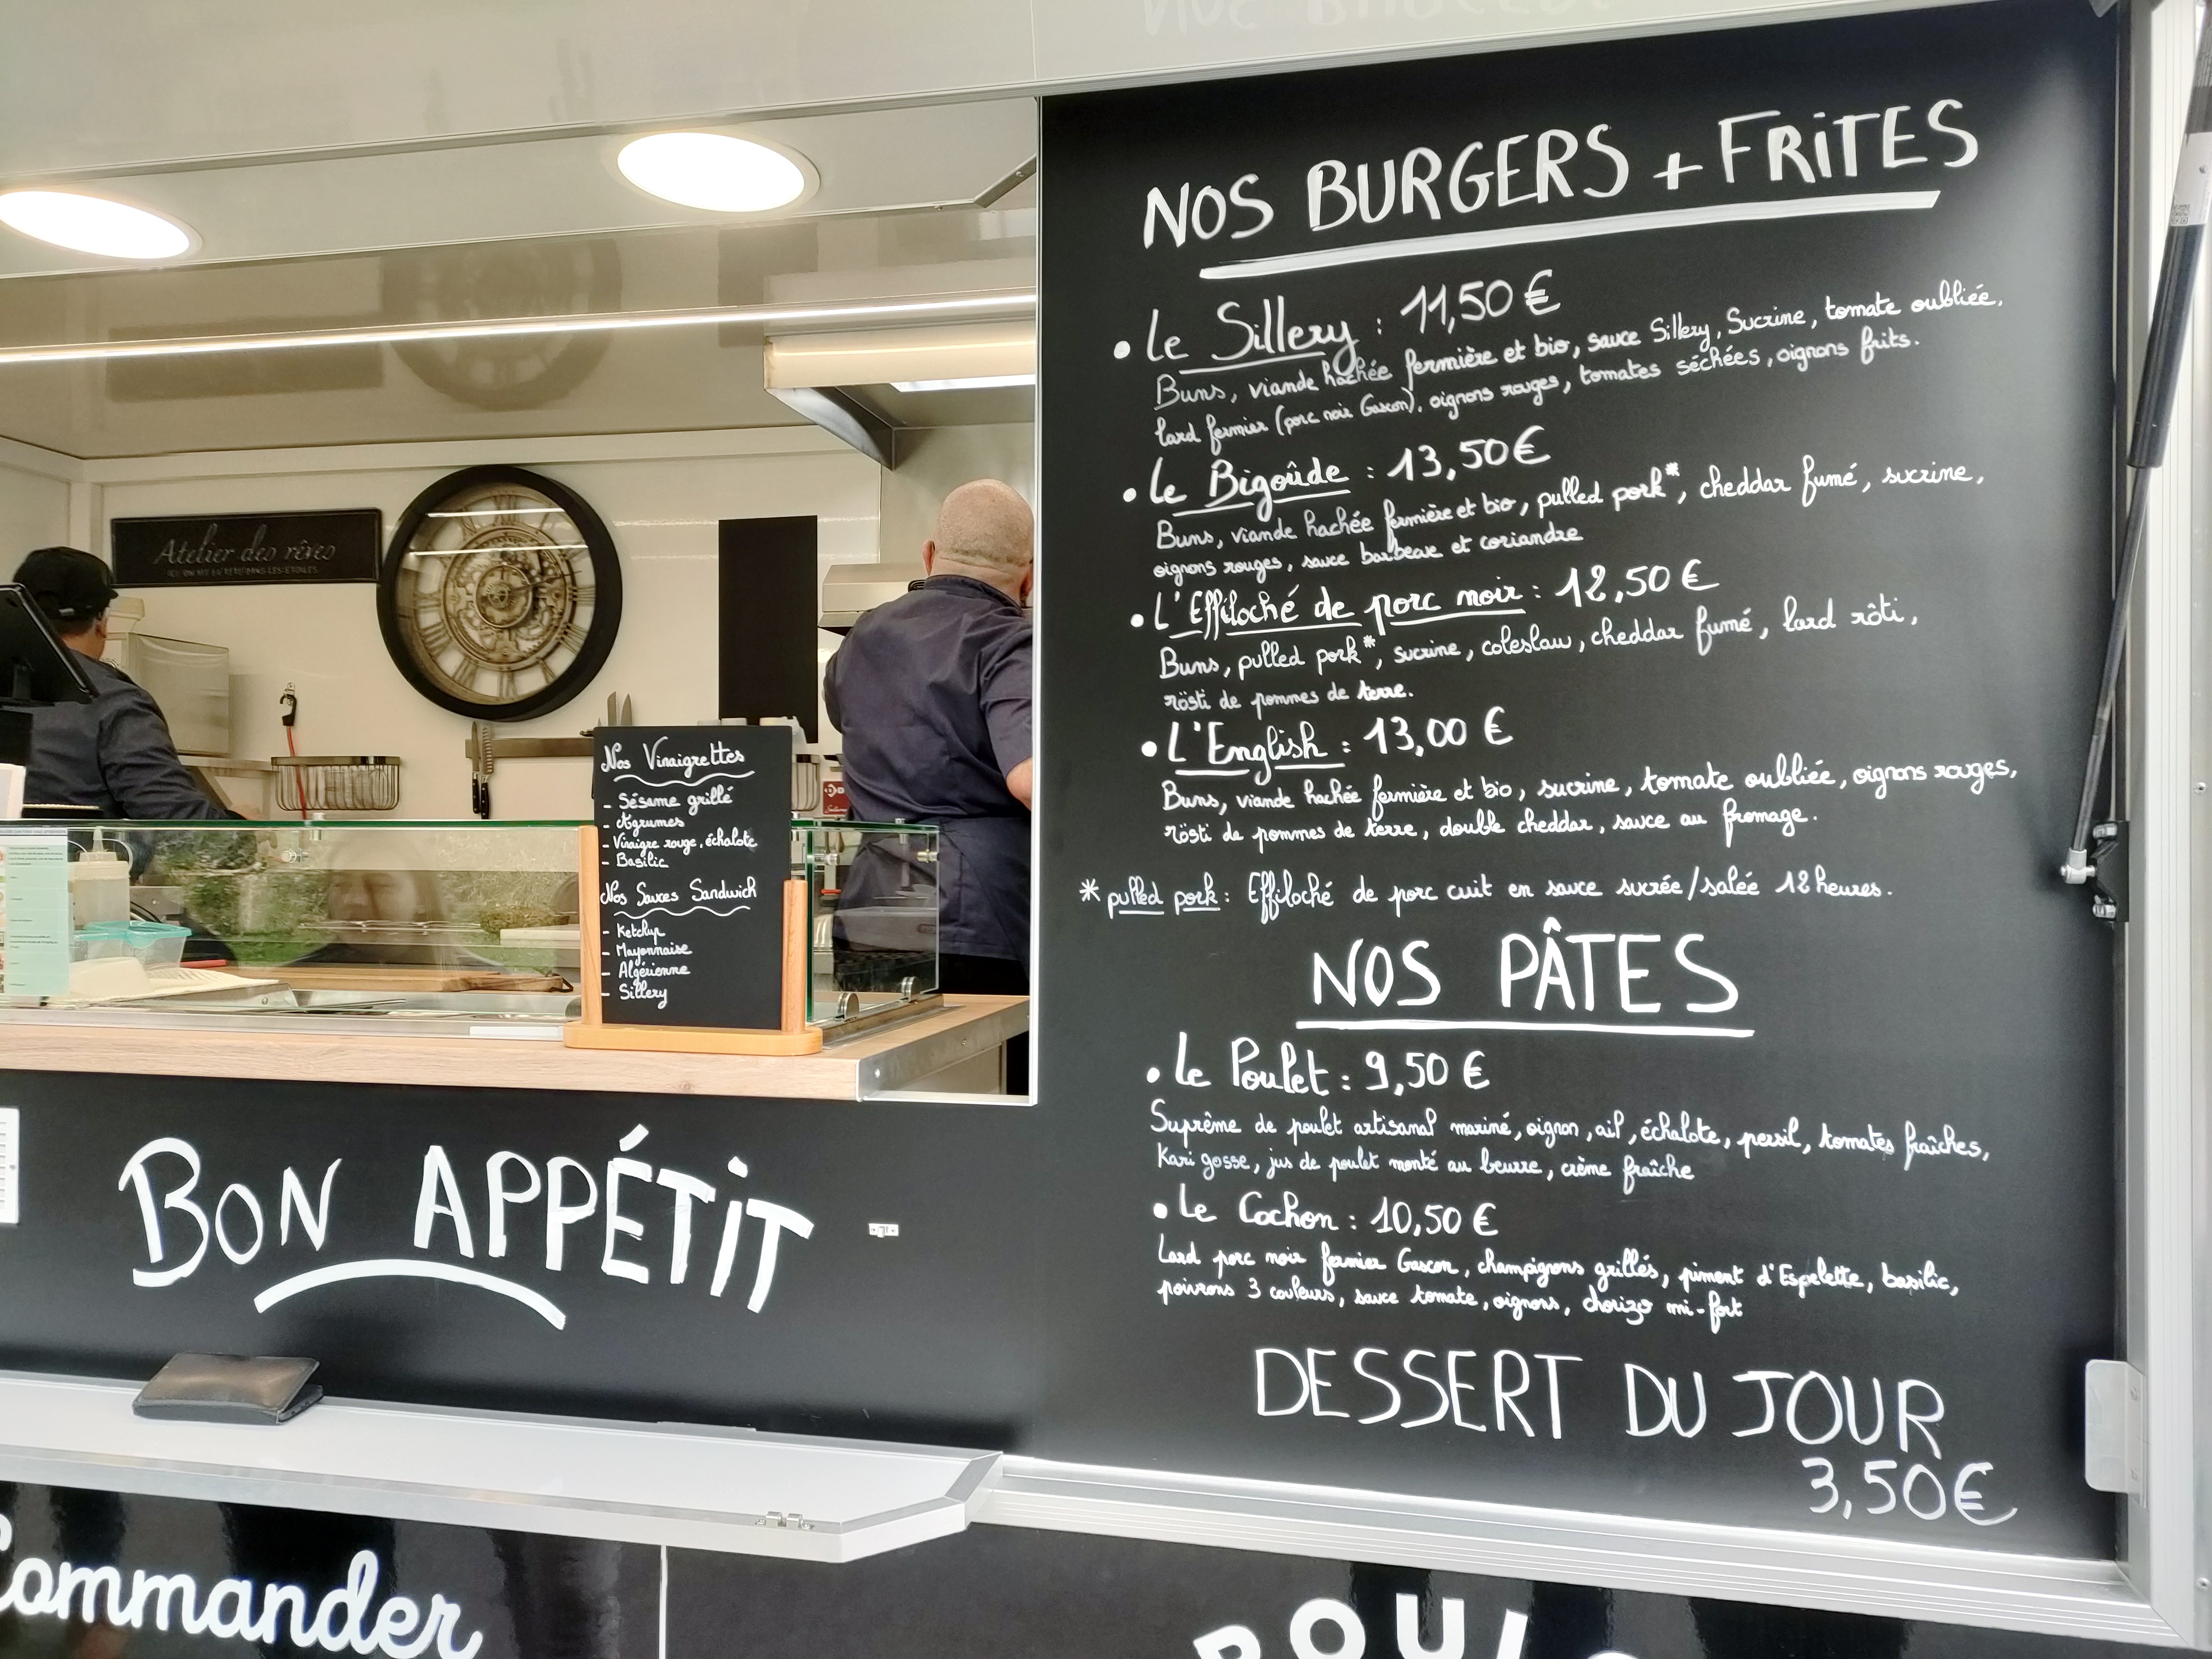 NOS BURGERS + FRITES
• Le Sillery : 11,50 €
Buns, viande hachée fermière et bio, sauce Sillery, Sucrine, tomate oubliée,
lard fermier (porc noir Gascon), oignons rouges, tomates séchées, oignons frits.
• Le Bigoûde : 13,50 €
Buns, viande hachée fermière et bio, pulled pork*, cheddar fumé, sucrine,
oignons rouges, sauce barbecue et coriandre
• L'Effiloché de porc noir : 12,50 €
Buns, pulled pork*, sucrine, coleslaw, cheddar fumé, lard rôti,
rösti de pommes de terre.
• L'English : 13,00 €
Buns, viande hachée fermière et bio, sucrine, tomate oubliée, oignons rouges,
rösti de pommes de terre, double cheddar, sauce au fromage.
* pulled pork : Effiloché de porc cuit en sauce sucrée/salée 12 heures.
NOS PÂTES
• Le Poulet : 9,50 €
Suprême de poulet artisanal mariné, oignon, ail, échalote, persil, tomates fraîches,
Kari gosse, jus de poulet monté au beurre, crème fraîche
• Le Cochon : 10,50 €
Lard porc noir fermier Gascon, champignons grillés, piment d'Espelette, basilic,
poivrons 3 couleurs, sauce tomate, oignons, chorizo mi-fort
DESSERT DU JOUR
3,50€
Atelier des rêves
Nos Vinaigrettes
- Sésame grillé
- Agrumes
- Vinaigre rouge, échalote
- Basilic
Nos Sauces Sandwich
- Ketchup
- Mayonnaise
- Algérienne
- Sillery
BON APPÉTIT
Commander